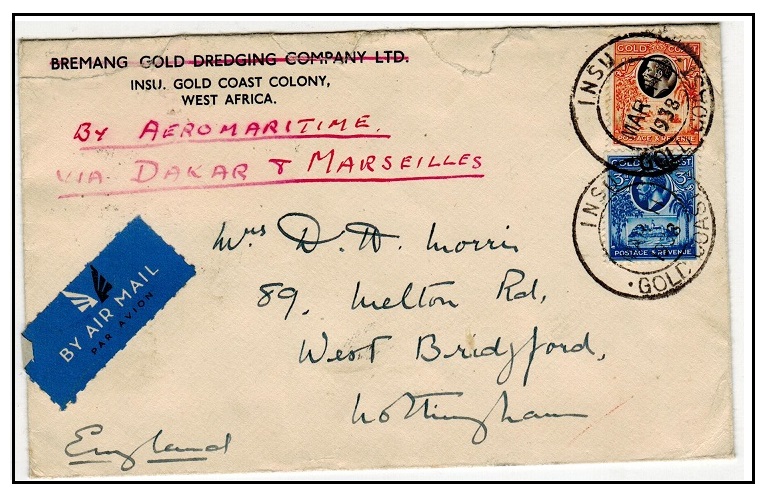 BREMANG GOLD DREDGING COMPANY LTD.
INSU. GOLD COAST COLONY,
WEST AFRICA.
BY AEROMARITIME.
VIA DAKAR & MARSEILLES
GOLD COAST
INSU
MAR
1938
GOLD COAST
POSTAGE & REVENUE
GOLD COAST
3D 3D
INSU
GOLD COAST
POSTAGE & REVENUE
BY AIR MAIL
PAR AVION
Mrs D. H. Morris
89, Melton Rd,
West Bridgford,
Nottingham
England